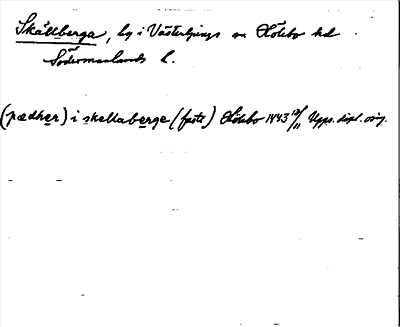 Skällberga, by i Västerljungs sn Hölebo hd
Södermanlands l.
(pædher) i skellaberge (fasts) Hölebo 1443 12/11 Upps. dipl. orig.